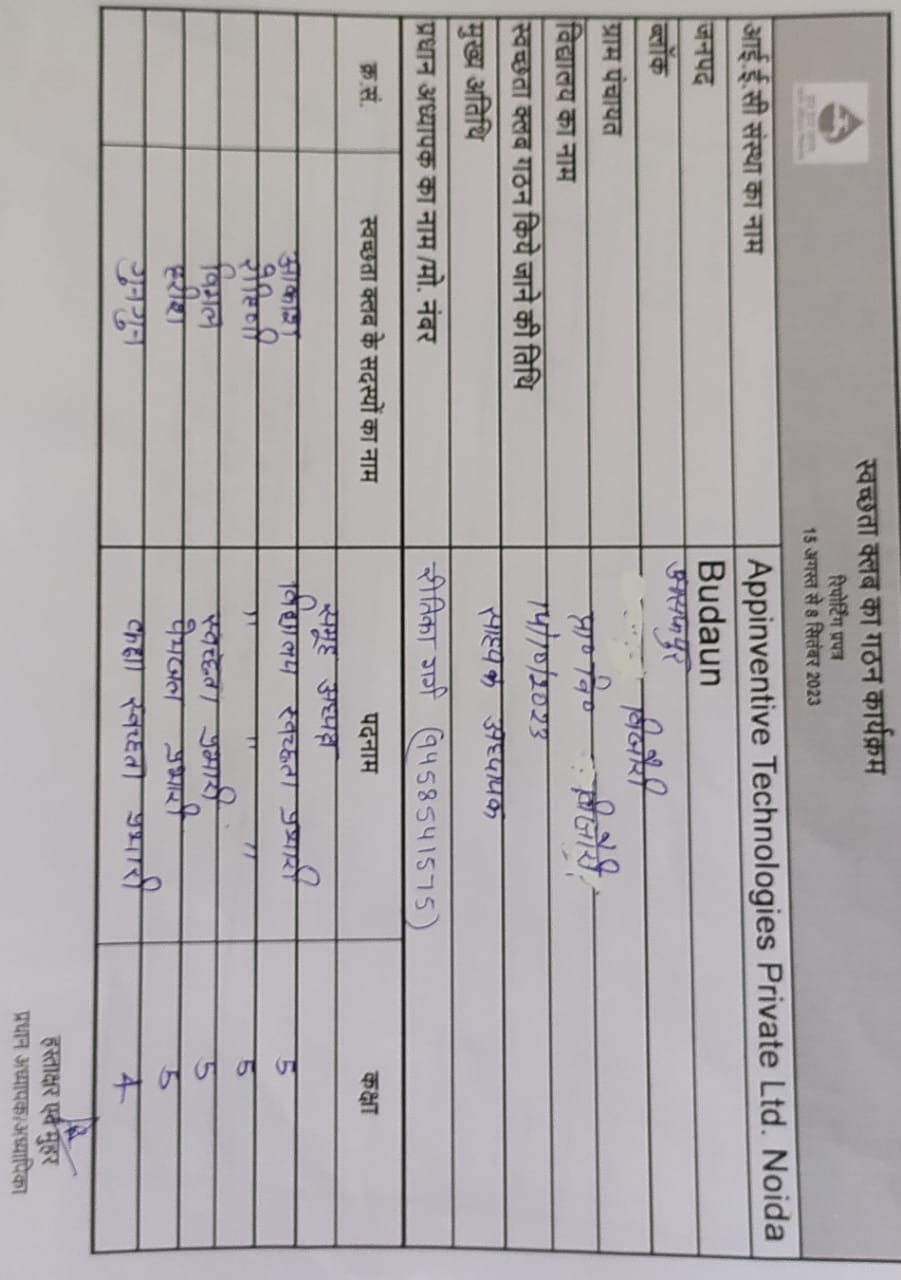 स्वच्छता क्लब का गठन कार्यक्रम
रिपोर्टिंग प्रपत्र
15 अगस्त से 8 सितंबर 2023
आई.ई.सी संस्था का नाम Appinventive Technologies Private Ltd. Noida
जनपद Budaun
ब्लॉक
ग्राम पंचायत
विद्यालय का नाम प्रा० वि०
स्वच्छता क्लब गठन किये जाने की तिथि 14/10/2023
मुख्य अतिथि अध्यापक
प्रधान अध्यापक का नाम /मो. नंबर (9458541575)
क्र.सं. स्वच्छता क्लब के सदस्यों का नाम पदनाम कक्षा
समूह अध्यक्ष
विद्यालय स्वच्छता प्रभारी 5
रोहिणी " " " 5
विमल स्वच्छता प्रभारी 5
हरीश पेयजल प्रभारी 5
गुनगुन कक्षा स्वच्छता प्रभारी 4
हस्ताक्षर एवं मुहर
प्रधान अध्यापक/अध्यापिका